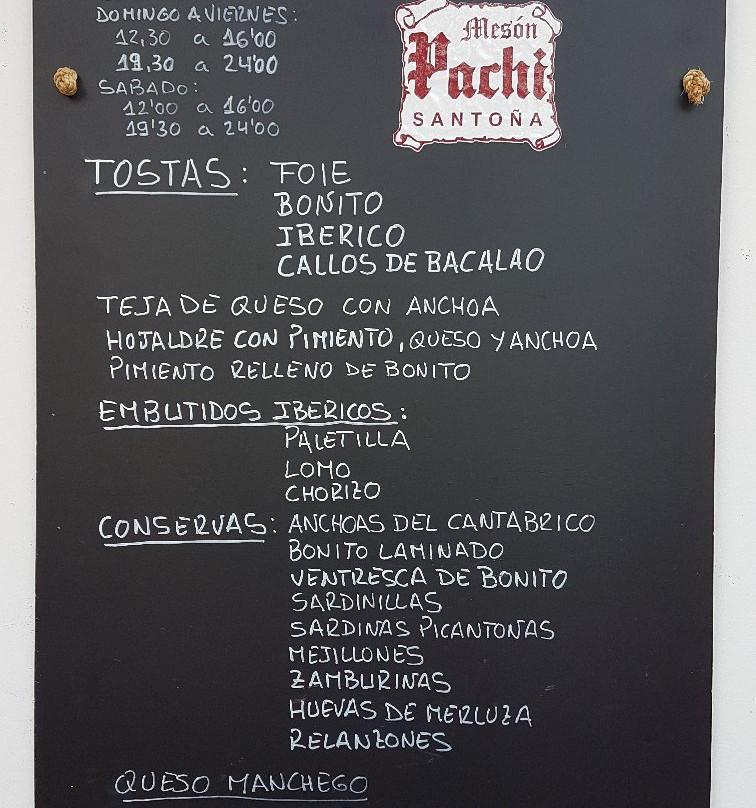 DOMINGO A VIERNES:
12,30 a 16'00
19,30 a 24'00
SABADO:
12'00 a 16'00
19'30 a 24'00
Mesón
Pachi
SANTOÑA
TOSTAS: FOIE
BONITO
IBERICO
CALLOS DE BACALAO
TEJA DE QUESO CON ANCHOA
HOJALDRE CON PIMIENTO, QUESO Y ANCHOA
PIMIENTO RELLENO DE BONITO
EMBUTIDOS IBERICOS:
PALETILLA
LOMO
CHORIZO
CONSERVAS: ANCHOAS DEL CANTABRICO
BONITO LAMINADO
VENTRESCA DE BONITO
SARDINILLAS
SARDINAS PICANTONAS
MEJILLONES
ZAMBURINAS
HUEVAS DE MERLUZA
RELANZONES
QUESO MANCHEGO